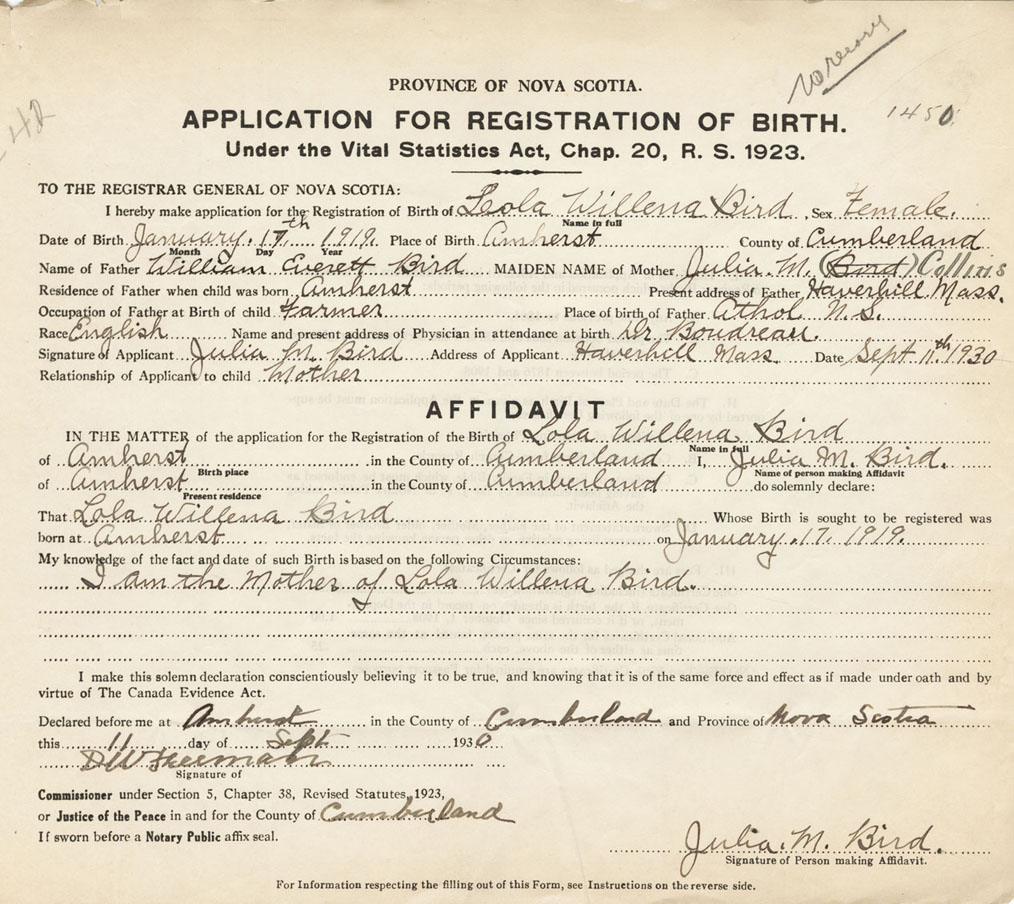 No record
1450
42
PROVINCE OF NOVA SCOTIA.
APPLICATION FOR REGISTRATION OF BIRTH.
Under the Vital Statistics Act, Chap. 20, R. S. 1923.
TO THE REGISTRAR GENERAL OF NOVA SCOTIA:
I hereby make application for the Registration of Birth of Leola Willena Bird, Sex Female.
Name in full
Date of Birth January. 17th 1919. Place of Birth Amherst County of Cumberland
Month Day Year
Name of Father William Everett Bird MAIDEN NAME of Mother Julia. M. (Bird) Collins
Residence of Father when child was born, Amherst Present address of Father Haverhill Mass.
Occupation of Father at Birth of child Farmer Place of birth of Father Athol N. S.
Race English Name and present address of Physician in attendance at birth Dr. Boudreau.
Signature of Applicant Julia M. Bird Address of Applicant Haverhill Mass. Date Sept 11th 1930
Relationship of Applicant to child Mother
AFFIDAVIT
IN THE MATTER of the application for the Registration of the Birth of Lola Willena Bird
Name in full
of Amherst in the County of Cumberland I, Julia M. Bird.
Birth place Name of person making Affidavit
of Amherst in the County of Cumberland do solemnly declare:
Present residence
That Lola Willena Bird Whose Birth is sought to be registered was
born at Amherst on January. 17. 1919.
My knowledge of the fact and date of such Birth is based on the following Circumstances:
I am the Mother of Lola Willena Bird.
I make this solemn declaration conscientiously believing it to be true, and knowing that it is of the same force and effect as if made under oath and by
virtue of The Canada Evidence Act.
Declared before me at Amherst in the County of Cumberland and Province of Nova Scotia
this 11 day of Sept 1930
D W Freeman
Signature of
Commissioner under Section 5, Chapter 38, Revised Statutes, 1923,
or Justice of the Peace in and for the County of Cumberland
If sworn before a Notary Public affix seal.
Julia. M. Bird.
Signature of Person making Affidavit.
For Information respecting the filling out of this Form, see Instructions on the reverse side.